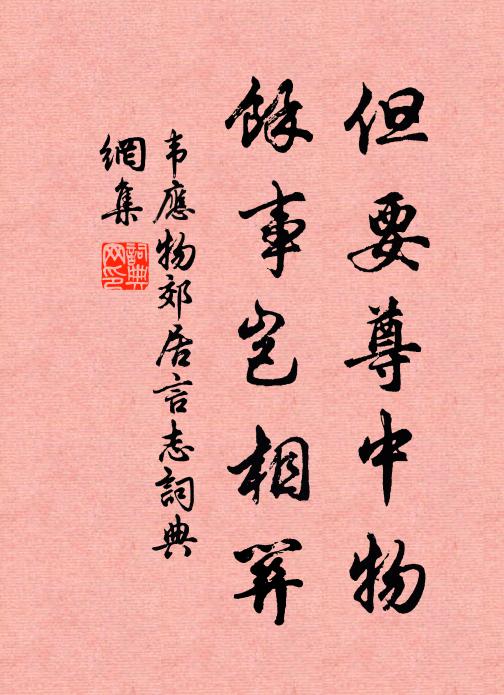 但要尊中物
餘事豈相關
韦應物郊居言志詞典
網集
詞典
网印